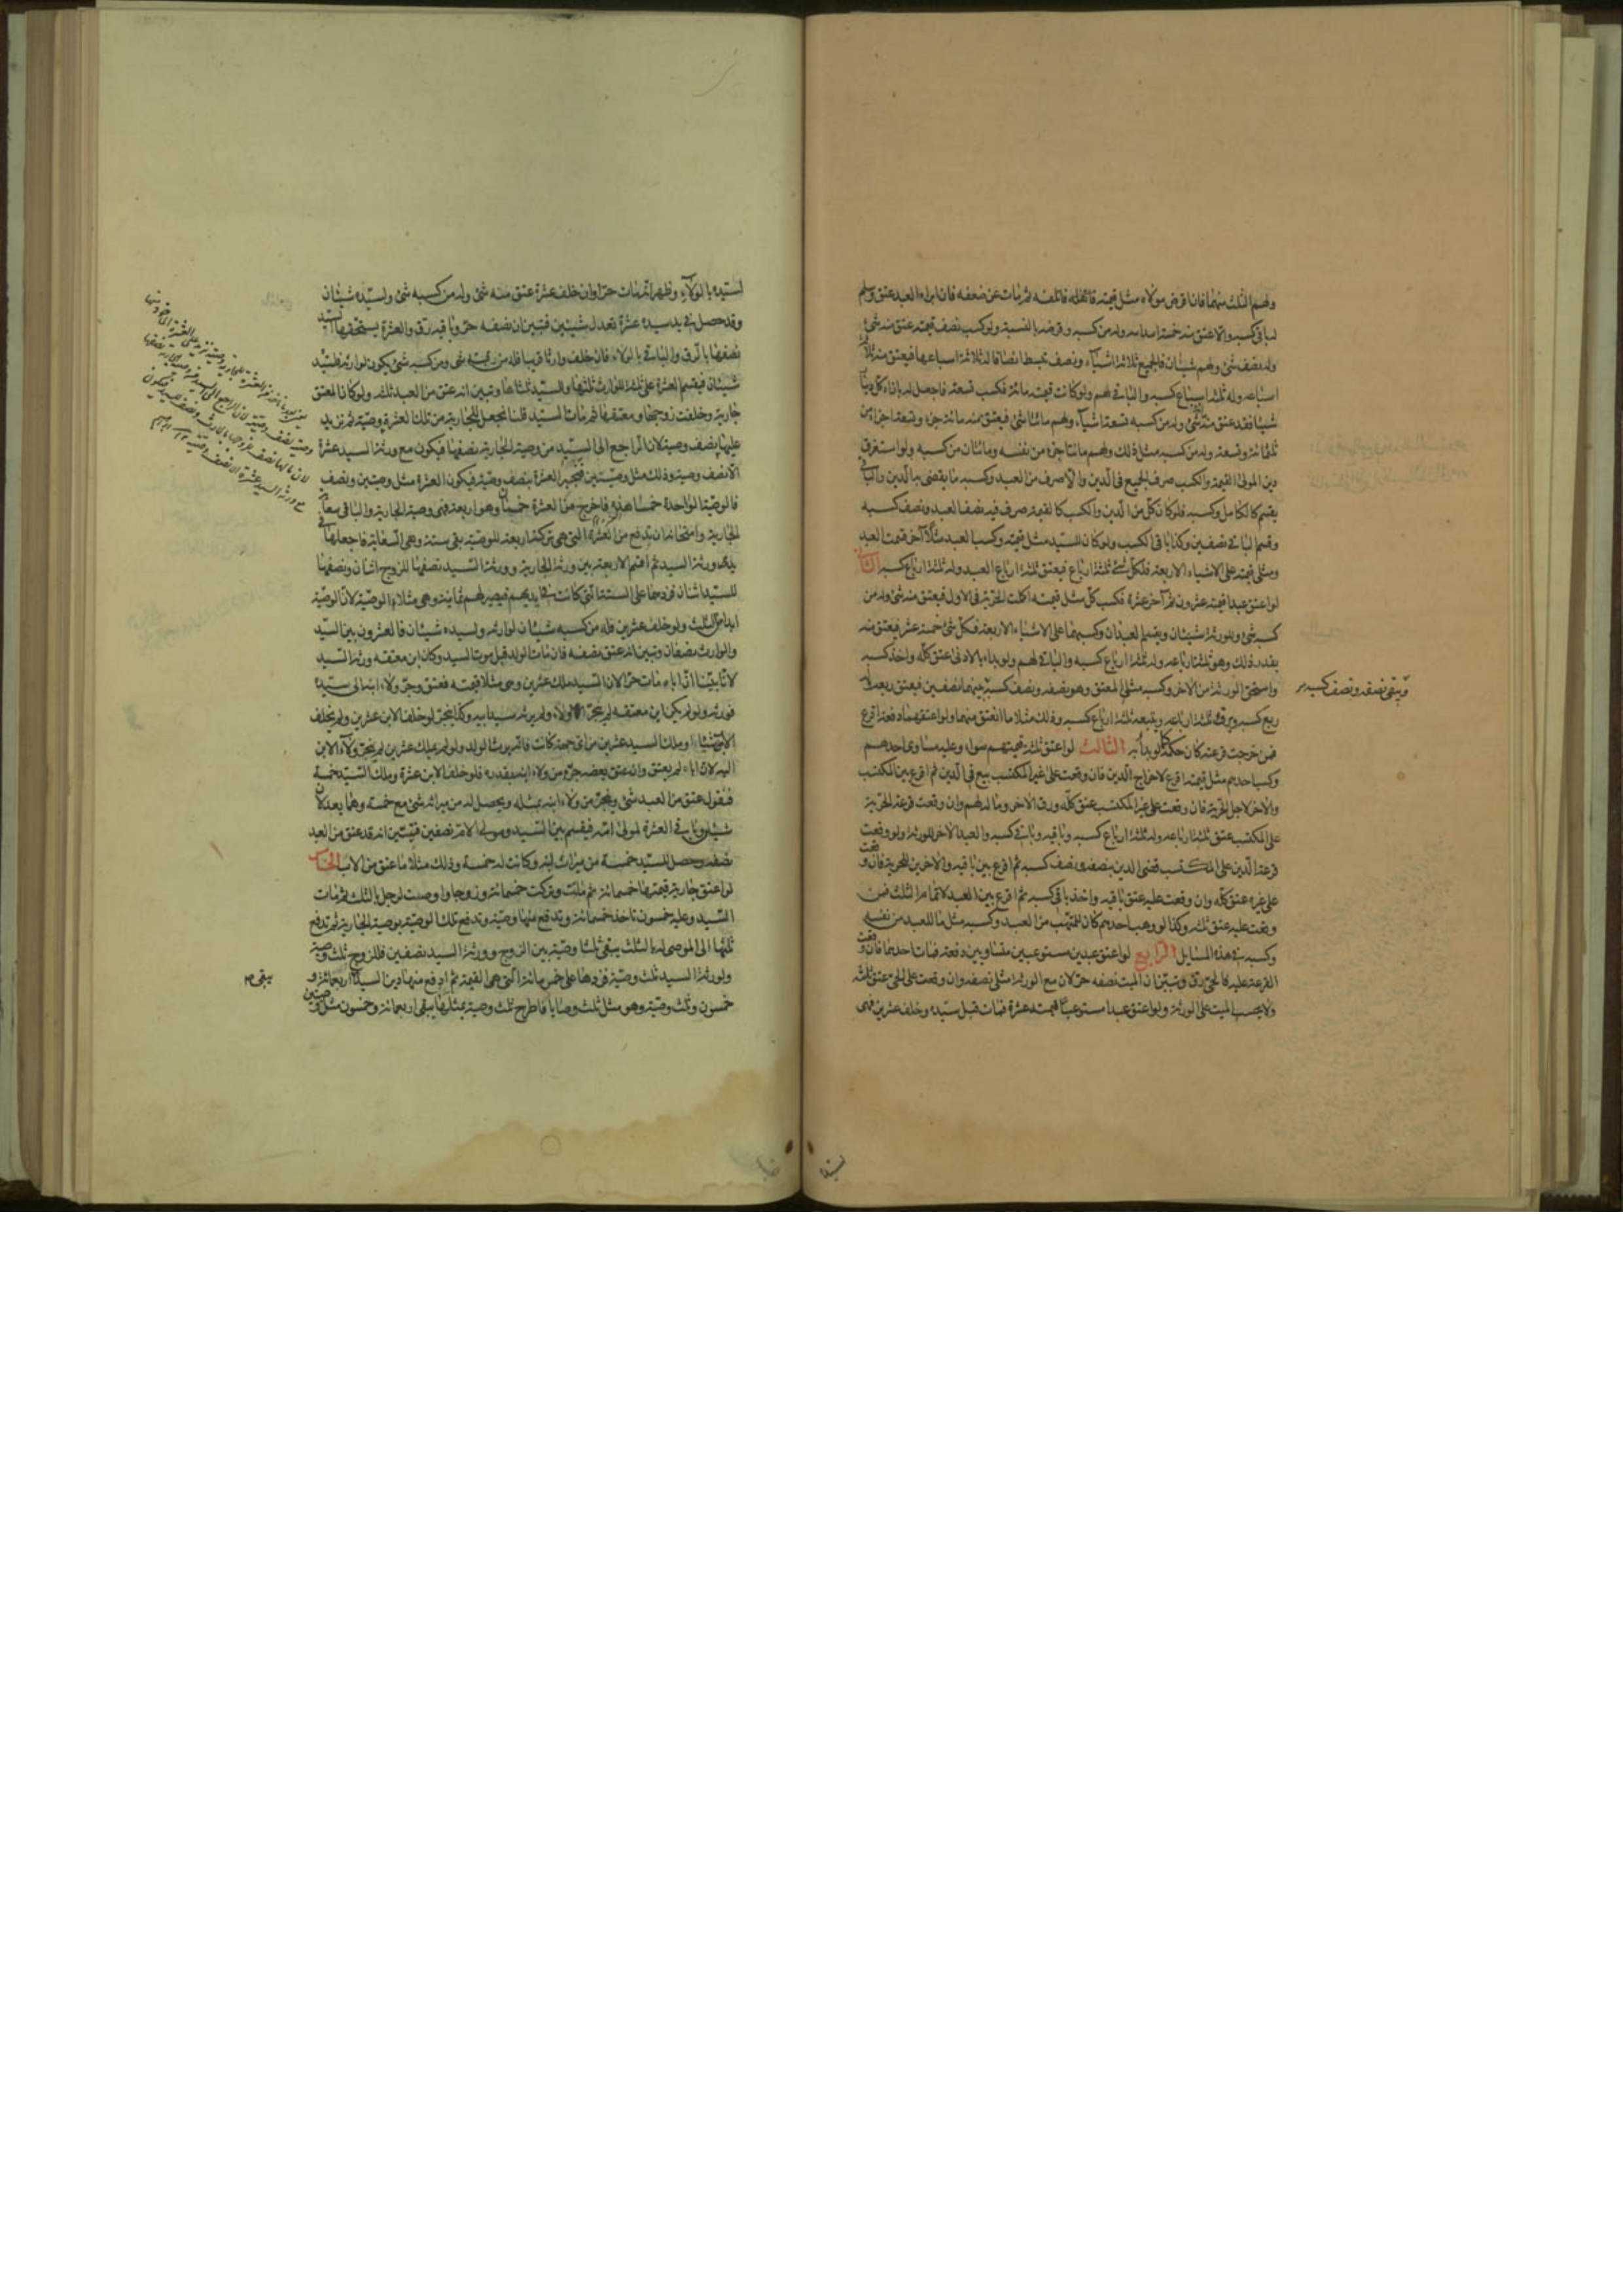 ولهم الثلث منهما فان اقرض مولاه مثل قيمته فاتلفه ثم مات عن ضعفه فان ابراه العبد عنق وسلم
لباقي كسبه والا عتق منه خمسة اسداسه وله من كسبه وقرضه بالنسبة ولو كسب نصف قيمته عتق منه شئ
وله نصف شئ ولهم شيئان فالجميع ثلاثة اشياء ونصف تبسط انصافا له ثلاثة اسباعها فيعتق منه ثلاثة
اسباعه وله ثلثة اسباع كسبه والباقي لهم ولو كانت قيمته مائة فكسب تسعة فاجعل له بازاء كل دينار
شيئا فقد عتق منه مائة شئ وله من كسبه تسعة اشياء ولهم مائتا شئ فيعتق منه مائة جزء وتسعة اجزاء من
ثلثمائة وتسعة وله من كسبه مثل ذلك ولهم مائتا جزء من نفسه ومائتان من كسبه ولو استغرق
دين المولى القيمة والكسب صرف الجميع في الدين والا صرف من العبد وكسبه ما يقضى به الدين والباقي
يقسم كالكامل وكسبه فلو كان كل من الدين والكسب كالقيمة صرف فيه نصف العبد ونصف كسبه
وقسم الباقي نصفين وكذا باقي الكسب ولو كان للسيد مثل قيمته وكسب العبد مثلا آخر قسمت العبد
ومثلي قيمته على الاشياء الاربعة فلكل شئ ثلثة ارباع فيعتق ثلثة ارباع العبد وله ثلثة ارباع كسبه الثاني
لو اعتق عبدا قيمته عشرون ثم آخر عشرة فكسب كل مثل قيمته اكملت الحرية في الاول فيعتق منه شئ وله من
كسبه شئ وللورثة شيئان ويقسم العبدان وكسبهما على الاشياء الاربعة فكل شئ خمسة عشر فيعتق منه
بقدر ذلك وهو ثلثة ارباعه وله ثلثة ارباع كسبه والباقي لهم ولو بداء بالادنى عتق كله واخذ كسبه
واستحق الورثة من الاخر وكسبه مثلي المعتق وهو نصفه ونصف كسبه
ويبقى نصفه ونصف كسبه
بينهما نصفين فيعتق ربعه وله
ربع كسبه ويرق ثلثة ارباعه ويتبعه ثلثة ارباع كسبه وذلك مثلا ما انعتق منهما ولو اعتقهما دفعة اقرع
فمن خرجت قرعته كان حكمه كما لو بدأ به الثالث لو اعتق ثلثة قيمتهم سواء وعليه مساو لاحدهم
وكسب احدهم مثل قيمته اقرع لاخراج الدين فان وقعت على غير المكتسب بيع في الدين ثم اقرع بين المكتسب
والاخر لاجل الحرية فان وقعت على غير المكتسب عتق كله ورق الاخر وماله لهم وان وقعت قرعة الحرية
على المكتسب عتق ثلثة ارباعه وله ثلثة ارباع كسبه وباقيه وباقي كسبه والعبد الاخر للورثة ولو وقعت
قرعة الدين على المكتسب قضى الدين بنصفه ونصف كسبه ثم اقرع بين باقيه والاخرين للحرية فان وقعت
على غيره عتق كله وان وقعت عليه عتق باقيه واخذ باقي كسبه ثم اقرع بين العبد لاتمام الثلث فمن
وقعت عليه عتق ثلثه وكذا لو وهب احدهم كان للمتهب من العبد وكسبه مثل ما للعبد من نفسه
وكسبه في هذه المسايل الرابع لو اعتق عبدين مستوعبين متساويين دفعة فمات احدهما فان وقعت
القرعة عليه فالحي رق وتبين ان الميت نصفه حر لان مع الورثة مثلي نصفه وان وقعت على الحي عتق ثلثه
ولا يحسب الميت على الورثة ولو اعتق عبدا مستوعبا قيمته عشرة فمات قبل سيده وخلف عشرين فهى
لسيده بالولاء وظهر انه مات حرا وان خلف عشرة عتق منه شئ وله من كسبه شئ ولسيده شيئان
وقد حصل في يد سيده عشرة تعدل شيئين فتبين ان نصفه حر وباقيه رق والعشرة يستحقها السيد
نصفها بالرق والباقي بالولاء فان خلف وارثا فله من رقبته شئ ومن كسبه شئ يكون لوارثه ولسيده
شيئان فيقسم العشرة على ثلثة للوارث ثلثها وللسيد ثلثاها وتبين انه عتق من العبد ثلثه ولو كان المعتق
جارية وخلفت زوجها ومعتقها ثم مات السيد قلنا نجعل للجارية من تلك العشرة وصية ثم نزيد
عليها نصف وصية لان الراجع الى السيد من وصية الجارية نصفها فيكون مع ورثة السيد عشرة
الا نصف وصية وذلك مثل وصيتين فتجبر العشرة بنصف وصية فيكون العشرة مثل وصيتين ونصف
فالوصية الواحدة خمسا هذه فاخرج من العشرة خمسان وهو اربعة فهي وصية الجارية والباقي
الجارية وامتحانه ان تدفع من العشرة التي هي تركته اربعة للوصية بقي ستة وهي السعاية فاجعلها في
يد ورثة السيد ثم اقسم الاربعة بين ورثة الجارية وورثة السيد نصفها للزوج اثنان ونصفها
للسيد اثنان فزدهما على الستة التي كانت في ايديهم فيصير لهم ثمانية وهي مثلا الوصية لان الوصية
ابدا من الثلث ولو خلف عشرين فله من كسبه شيئان لوارثه ولسيده شيئان فالعشرون بين السيد
والوارث نصفان وتبين انه عتق نصفه فان مات الولد قبل موت السيد وكان ابن معتقه ورثه السيد
لانا تبينا ان اباه مات حرا لان السيد ملك عشرين وهي مثلا قيمته فعتق وجر ولاء ابنه الى سيده
فورثه ولو لم يكن ابن معتقه لم ينجر الولاء ولم يرثه سيد ابيه وكذا ينجر لو خلف الابن عشرين ولم يخلف
الاب شيئا او ملك السيد عشرين من اي جهة كانت فانه يرث الولد ولو لم يملك عشرين لم ينجر ولاء الابن
اليه لان اباه لم يعتق وان عتق بعضه جر من ولاء ابنه بقدره فلو خلف الابن عشرة وملك السيد خمسة
فنقول عتق من العبد شئ وينجر من ولاء ابنه بمثله ويحصل له من ميراثه شئ مع خمسة وهما يعدلان
شيئين وباقي العشرة لمولى امه فيقسم بين السيد ومولى الام نصفين فتبين انه قد عتق من العبد
نصفه وحصل للسيد خمسة من ميراث ابنه وكانت له خمسة وذلك مثلا ما عتق من الاب الخامس
لو اعتق جارية قيمتها خمسمائة ثم ماتت وتركت خمسمائة وزوجا واوصت لرجل بالثلث ثم مات
السيد وعليه خمسون تاخذ خمسمائة وتدفع منها وصية وتدفع تلك الوصية بوصية الجارية ثم تدفع
ثلثها الى الموصى له بالثلث يبقى ثلثا وصية بين الزوج وورثة السيد نصفين فللزوج ثلث وصية
ولورثة السيد ثلث وصية فزدها على خمسمائة التي هي القيمة ثم ادفع منها دين السيد
يبقى
اربعمائة و
خمسون وثلث وصية وهو مثل ثلث وصايا فاطرح ثلث وصية بمثلها يبقى اربعمائة وخمسون مثل وصيتين